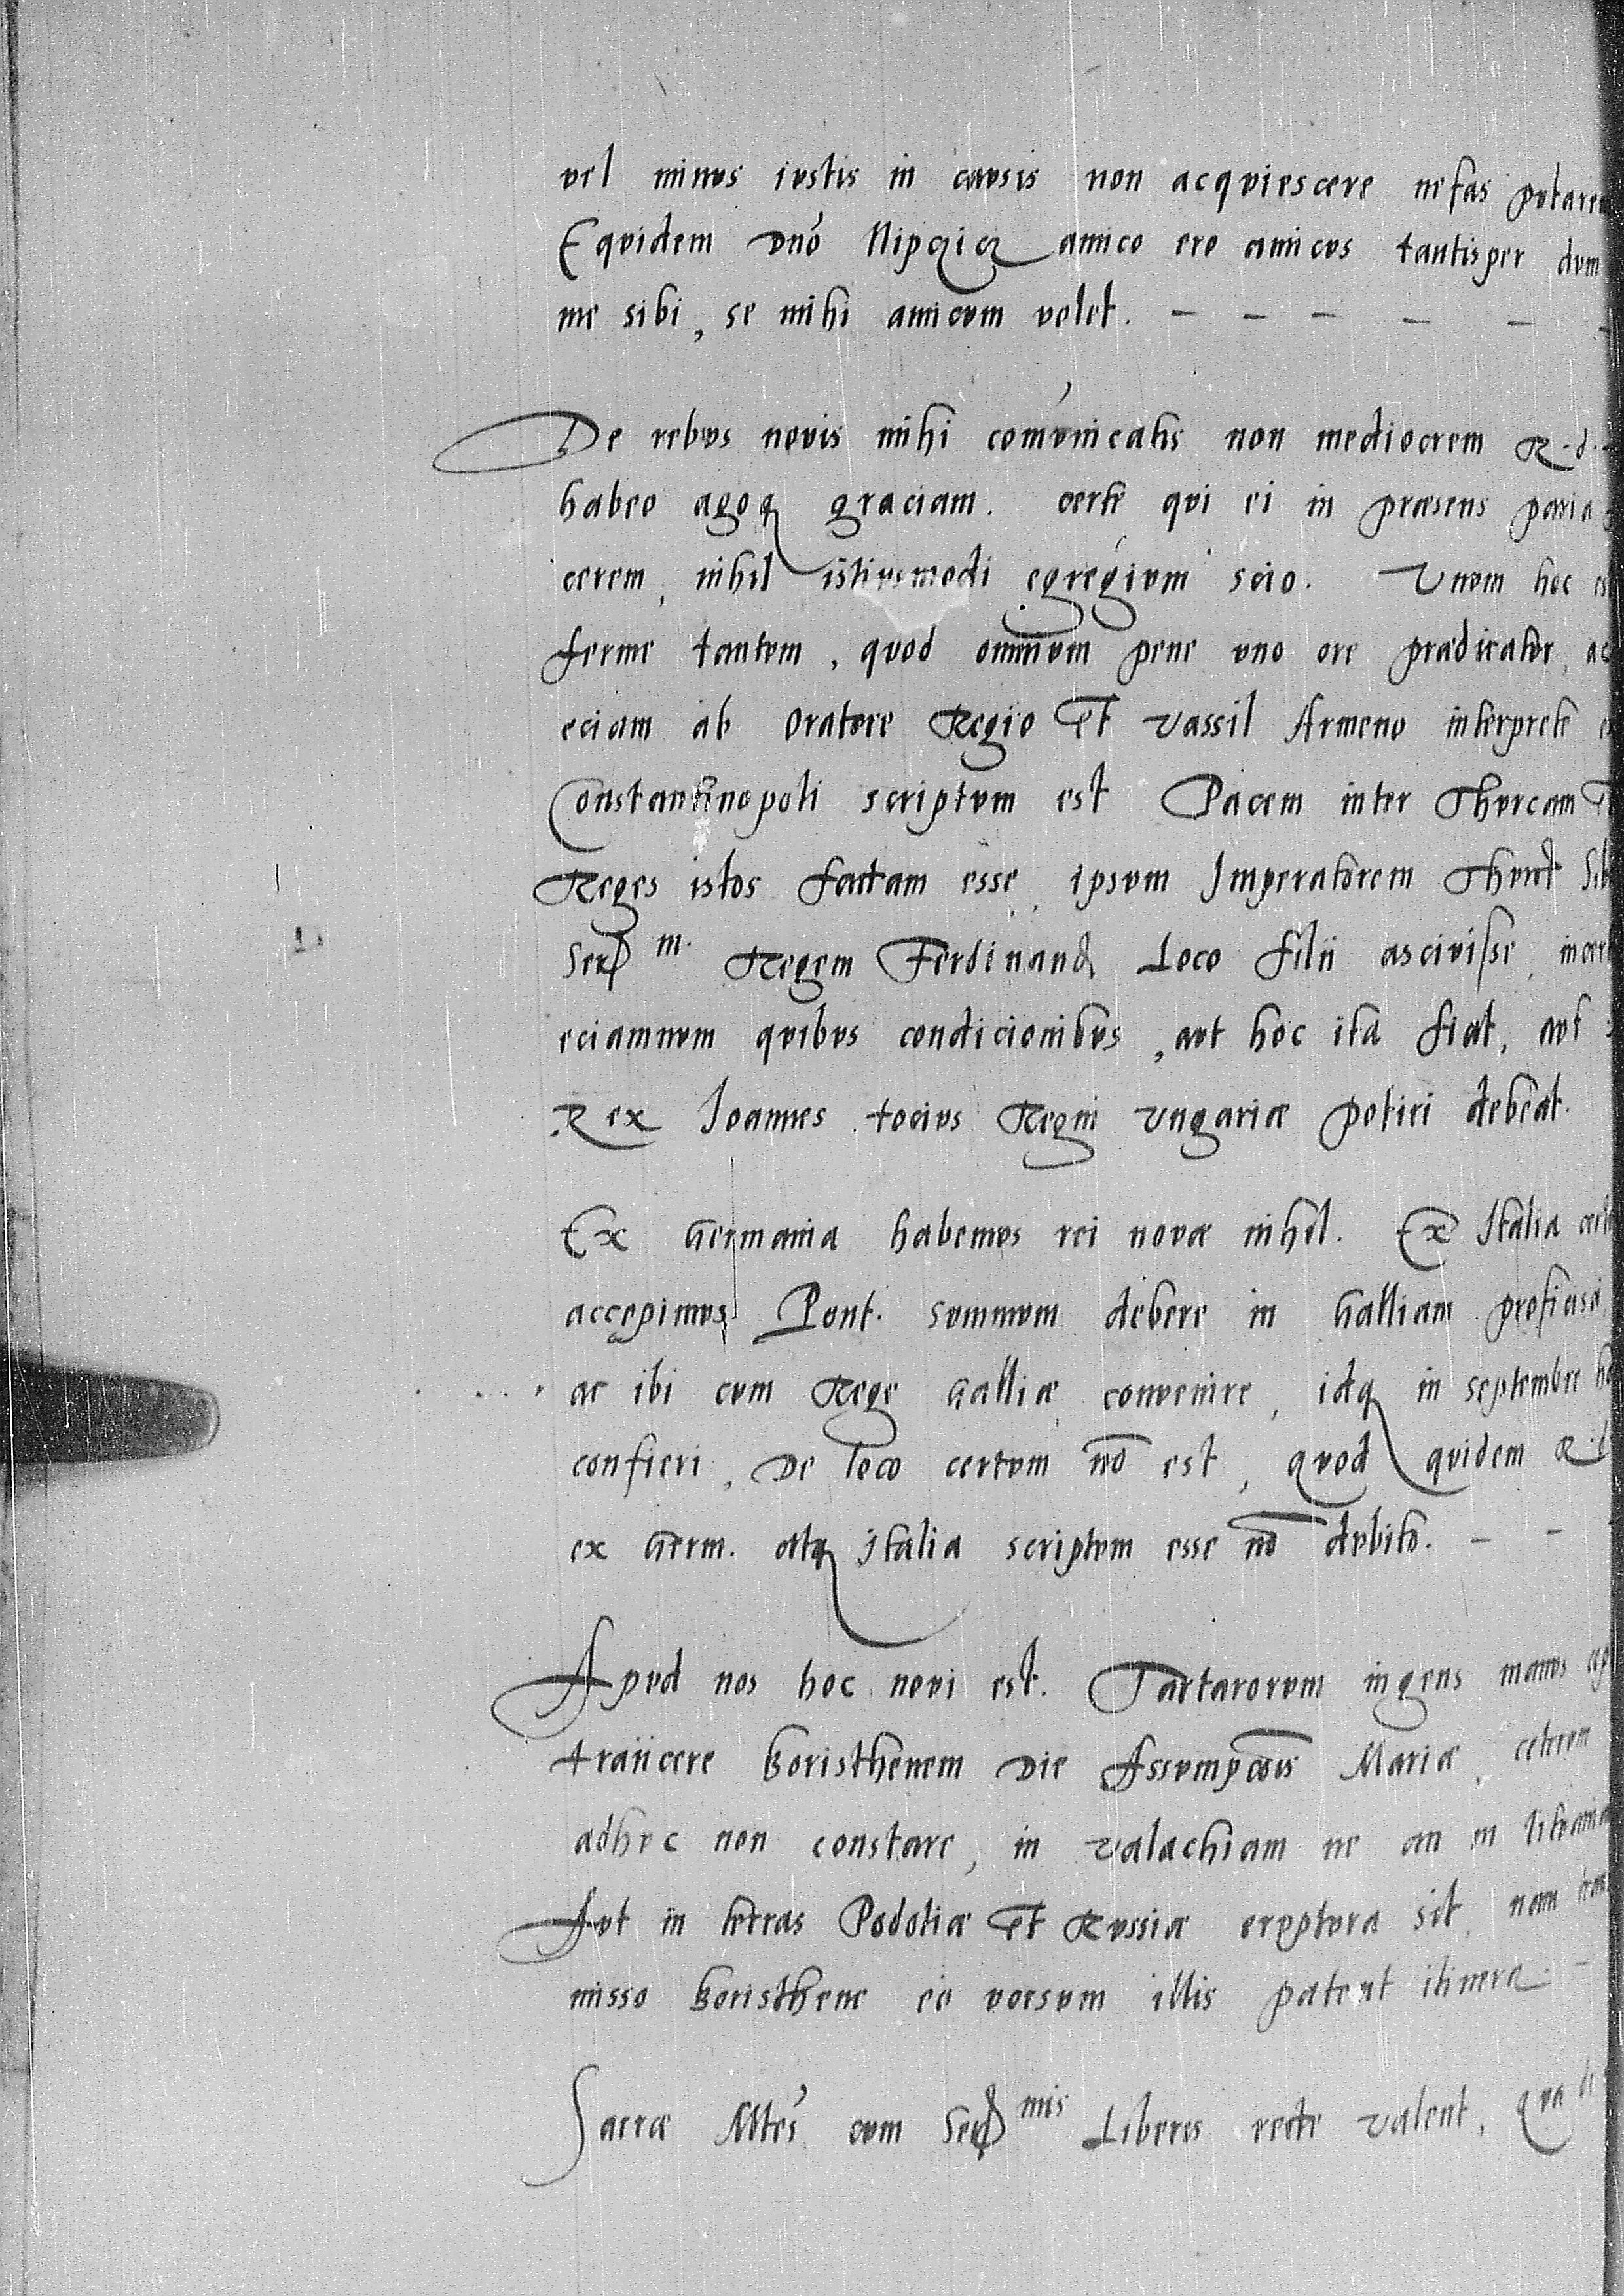 vel minus iustis in causis non acquiescere nefas putarem
Equidem Dno Nipczicz amico ero amicus tantisper dum
me sibi, se mihi amicum volet. – – – – – –
De rebus novis mihi comunicatis non mediocrem R. d.
habeo agoq graciam. certe qui ei in præsens paria
cerem, nihil istiusmodi egregium scio. Unum hoc es
ferme tantum, quod omnium pene uno ore prædicatur, ac
eciam ab Oratore Regio et Vassil Armeno interprete
Constantinopoli scriptum est Pacem inter Thurcam et
Reges istos factam esse, ipsum Imperatorem Thurc Sib
Ser m. Regem Ferdinand Loco filii ascivisse, incert
eciamnum quibus condicionibus, aut hoc ita fiat, aut
Rex Joannes tocius Regni Ungariæ potiri debeat.
Ex Germania habemus rei novæ nihil. Ex Italia
accepimus Pont. summum debere in Galliam proficisci,
ac ibi cum Rege Galliæ convenire, idq in septembre
confieri. De loco certum no est, quod quidem R. d
ex Germ. atq Italia scriptum esse no dubito. – –
Apud nos hoc novi est. Tartarorum ingens manus
traiicere Boristhenem Die Assumpcois Mariæ, ceterum
adhuc non constare, in Valachiam ne an in lituania
Aut in terras Podoliæ et Russiæ eruptura sit, nam trans
misso Boristhene eo vorsum illis patent itinera. –
Sacræ Mtes cum Ser mis Liberis recte valent, qua